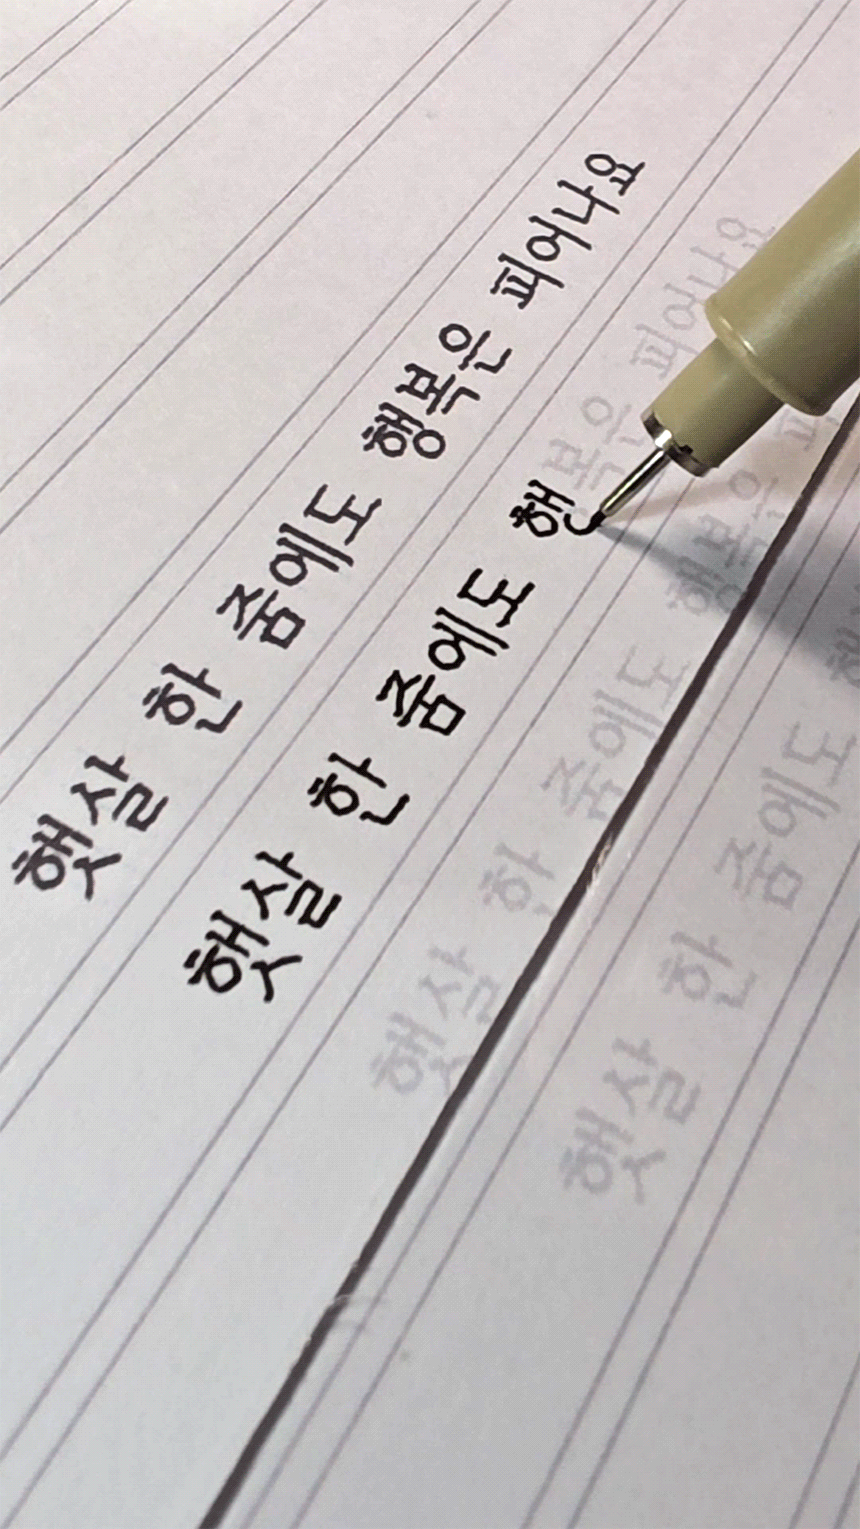 햇살 한 줌에도 행복은 피어나요
햇살 한 줌에도 해
햇살 한 줌에도 행복은 피어나요
햇살 한 줌에도